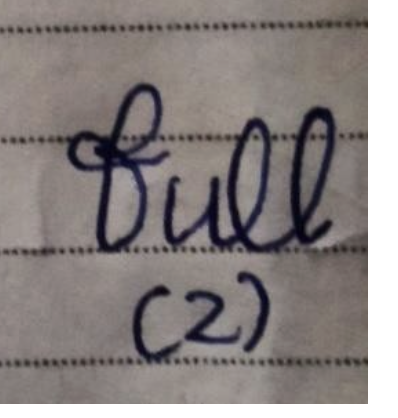 full
(2)